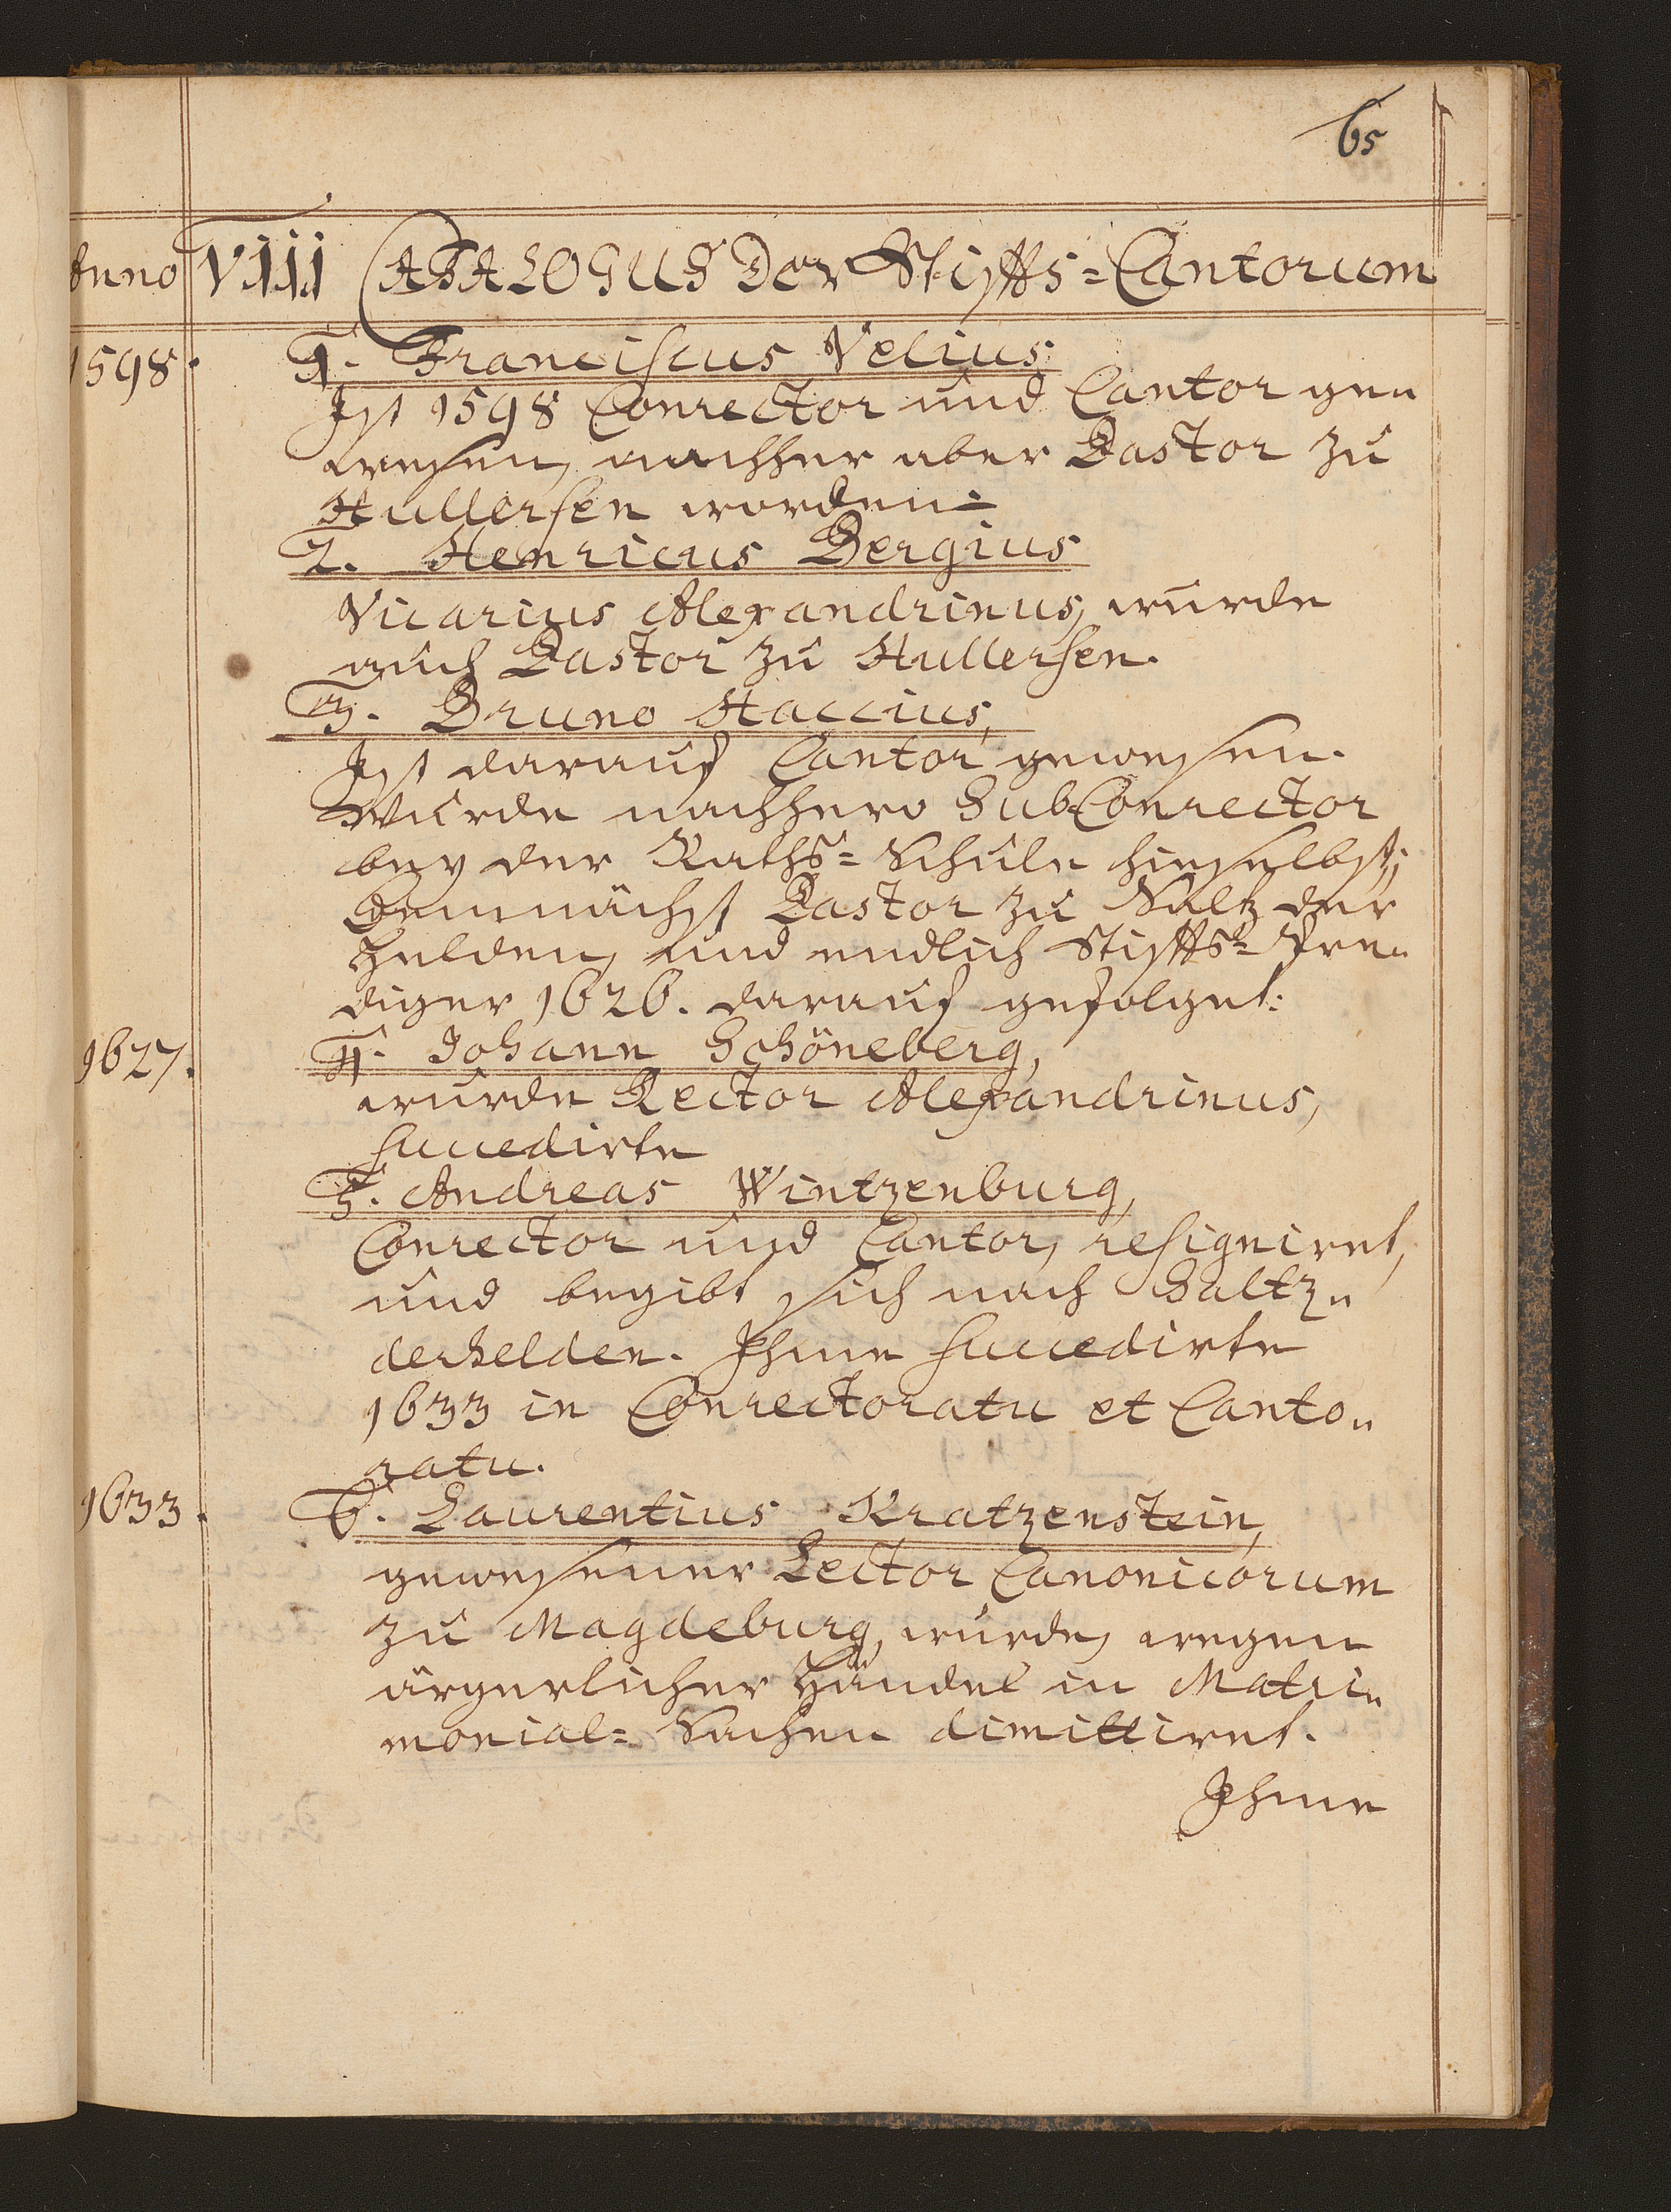 65
Anno VIII CATALOGUS Der Stiffts=Cantorum
1598. 1. Franciscus Velius.
Ist 1598 Conrector und Cantor ge„
wesen, nachher aber Pastor zu
Hullersen worden.
2. Henricus Bergius
Vicarius Alexandrinus, wurde
auch Pastor zu Hullersen.
3. Bruno Haccius,
Ist darauf Cantor gewesen.
Wurde nachhero SubConrector
bey der Raths=Schule hieselbst,
Demnächst Pastor zu Saltz der
Helden, und endlich Stiffts=Pre„
diger 1626. darauf gefolget:
1627. 4. Johann Schöneberg,
wurde Rector Alexandrinus,
succedirte
5. Andreas Wintzenburg,
Conrector und Cantor, resigniret,
und begibt sich nach Saltz„
derhelden. Ihme succedirte
1633 in Conrectoratu et Canto„
ratu.
1633. 6. Laurentius Kratzenstein,
gewesener Lector Canonicorum
zu Magdeburg, wurde, wegen
ärgerlicher Händel in Matri„
monial=Sachen dimittiret.
Ihme